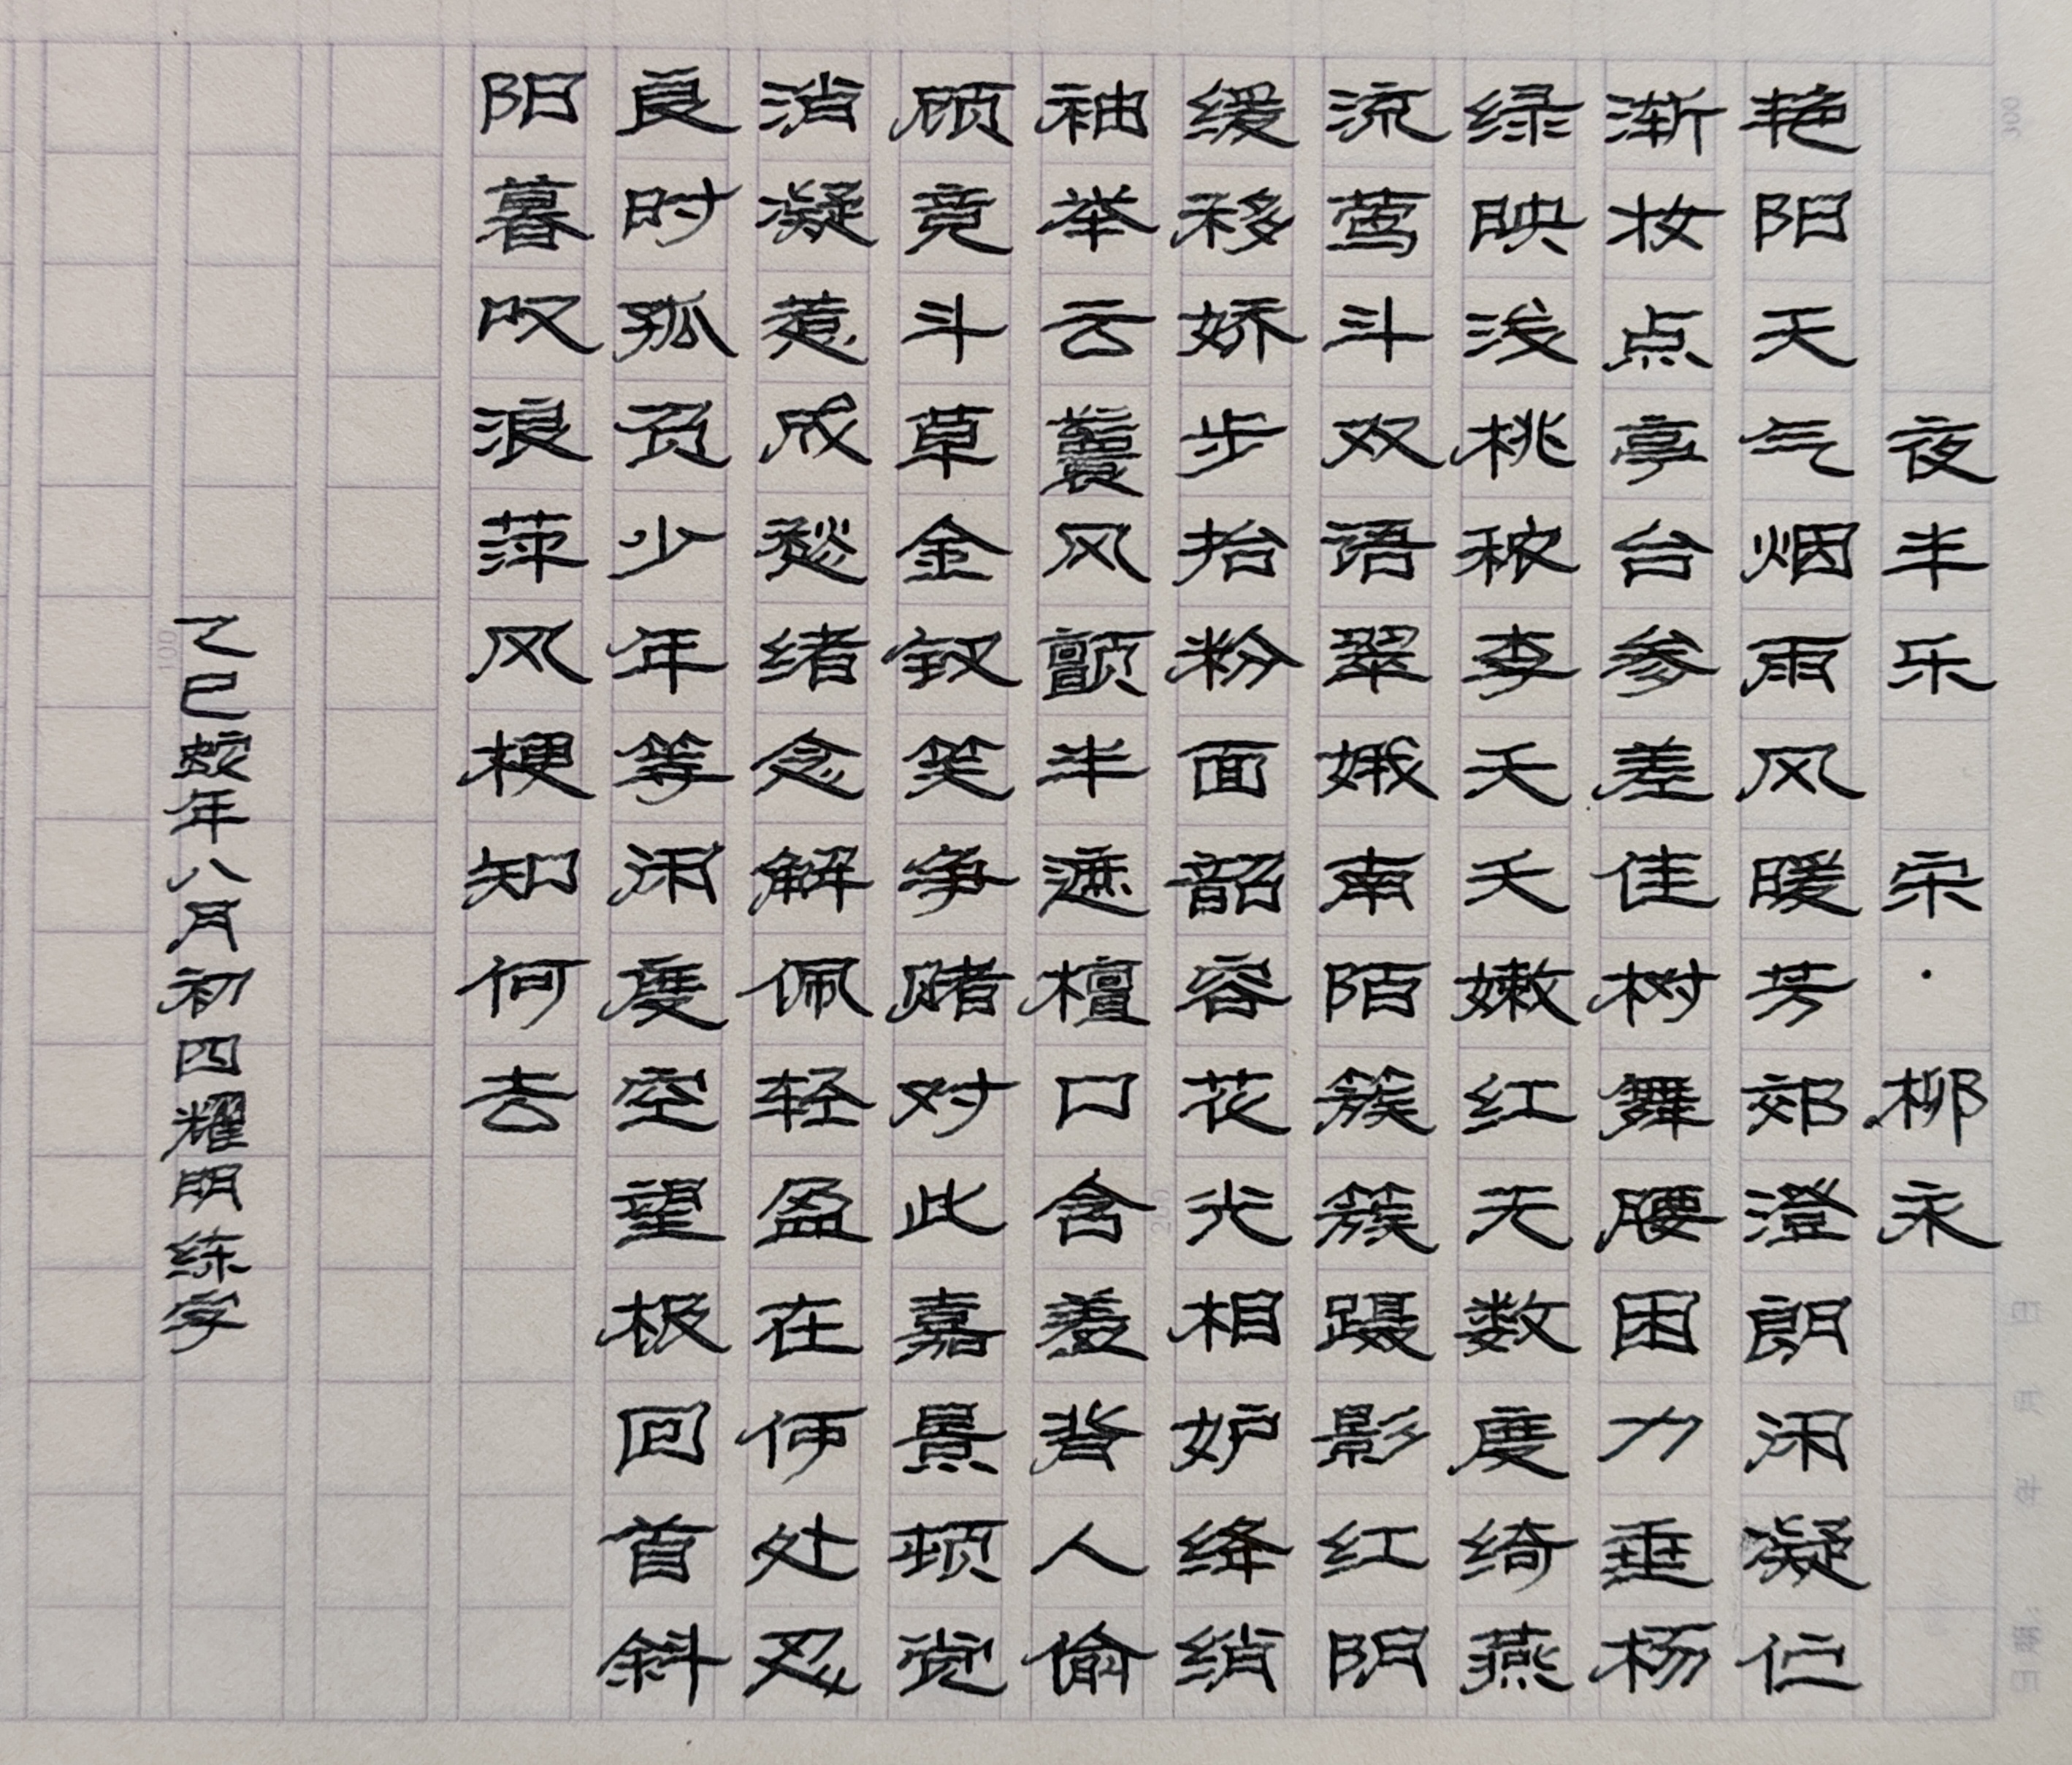 夜半乐 宋·柳永
艳阳天气烟雨风暖芳郊澄朗闲凝伫
渐妆点亭台参差佳树舞腰困力垂杨
绿映浅桃秾李夭夭嫩红无数度绮燕
流莺斗双语翠娥南陌簇簇蹑影红阴
缓移娇步抬粉面韶容花光相妒绛绡
袖举云鬟风颤半遮檀口含羞背人偷
顾竞斗草金钗笑争赌对此嘉景顿觉
消凝惹成愁绪念解佩轻盈在何处忍
良时孤负少年等闲度空望极回首斜
阳暮叹浪萍风梗知何去
乙巳蛇年八月初四耀明练字
300
200
100
日期: 年 月 日